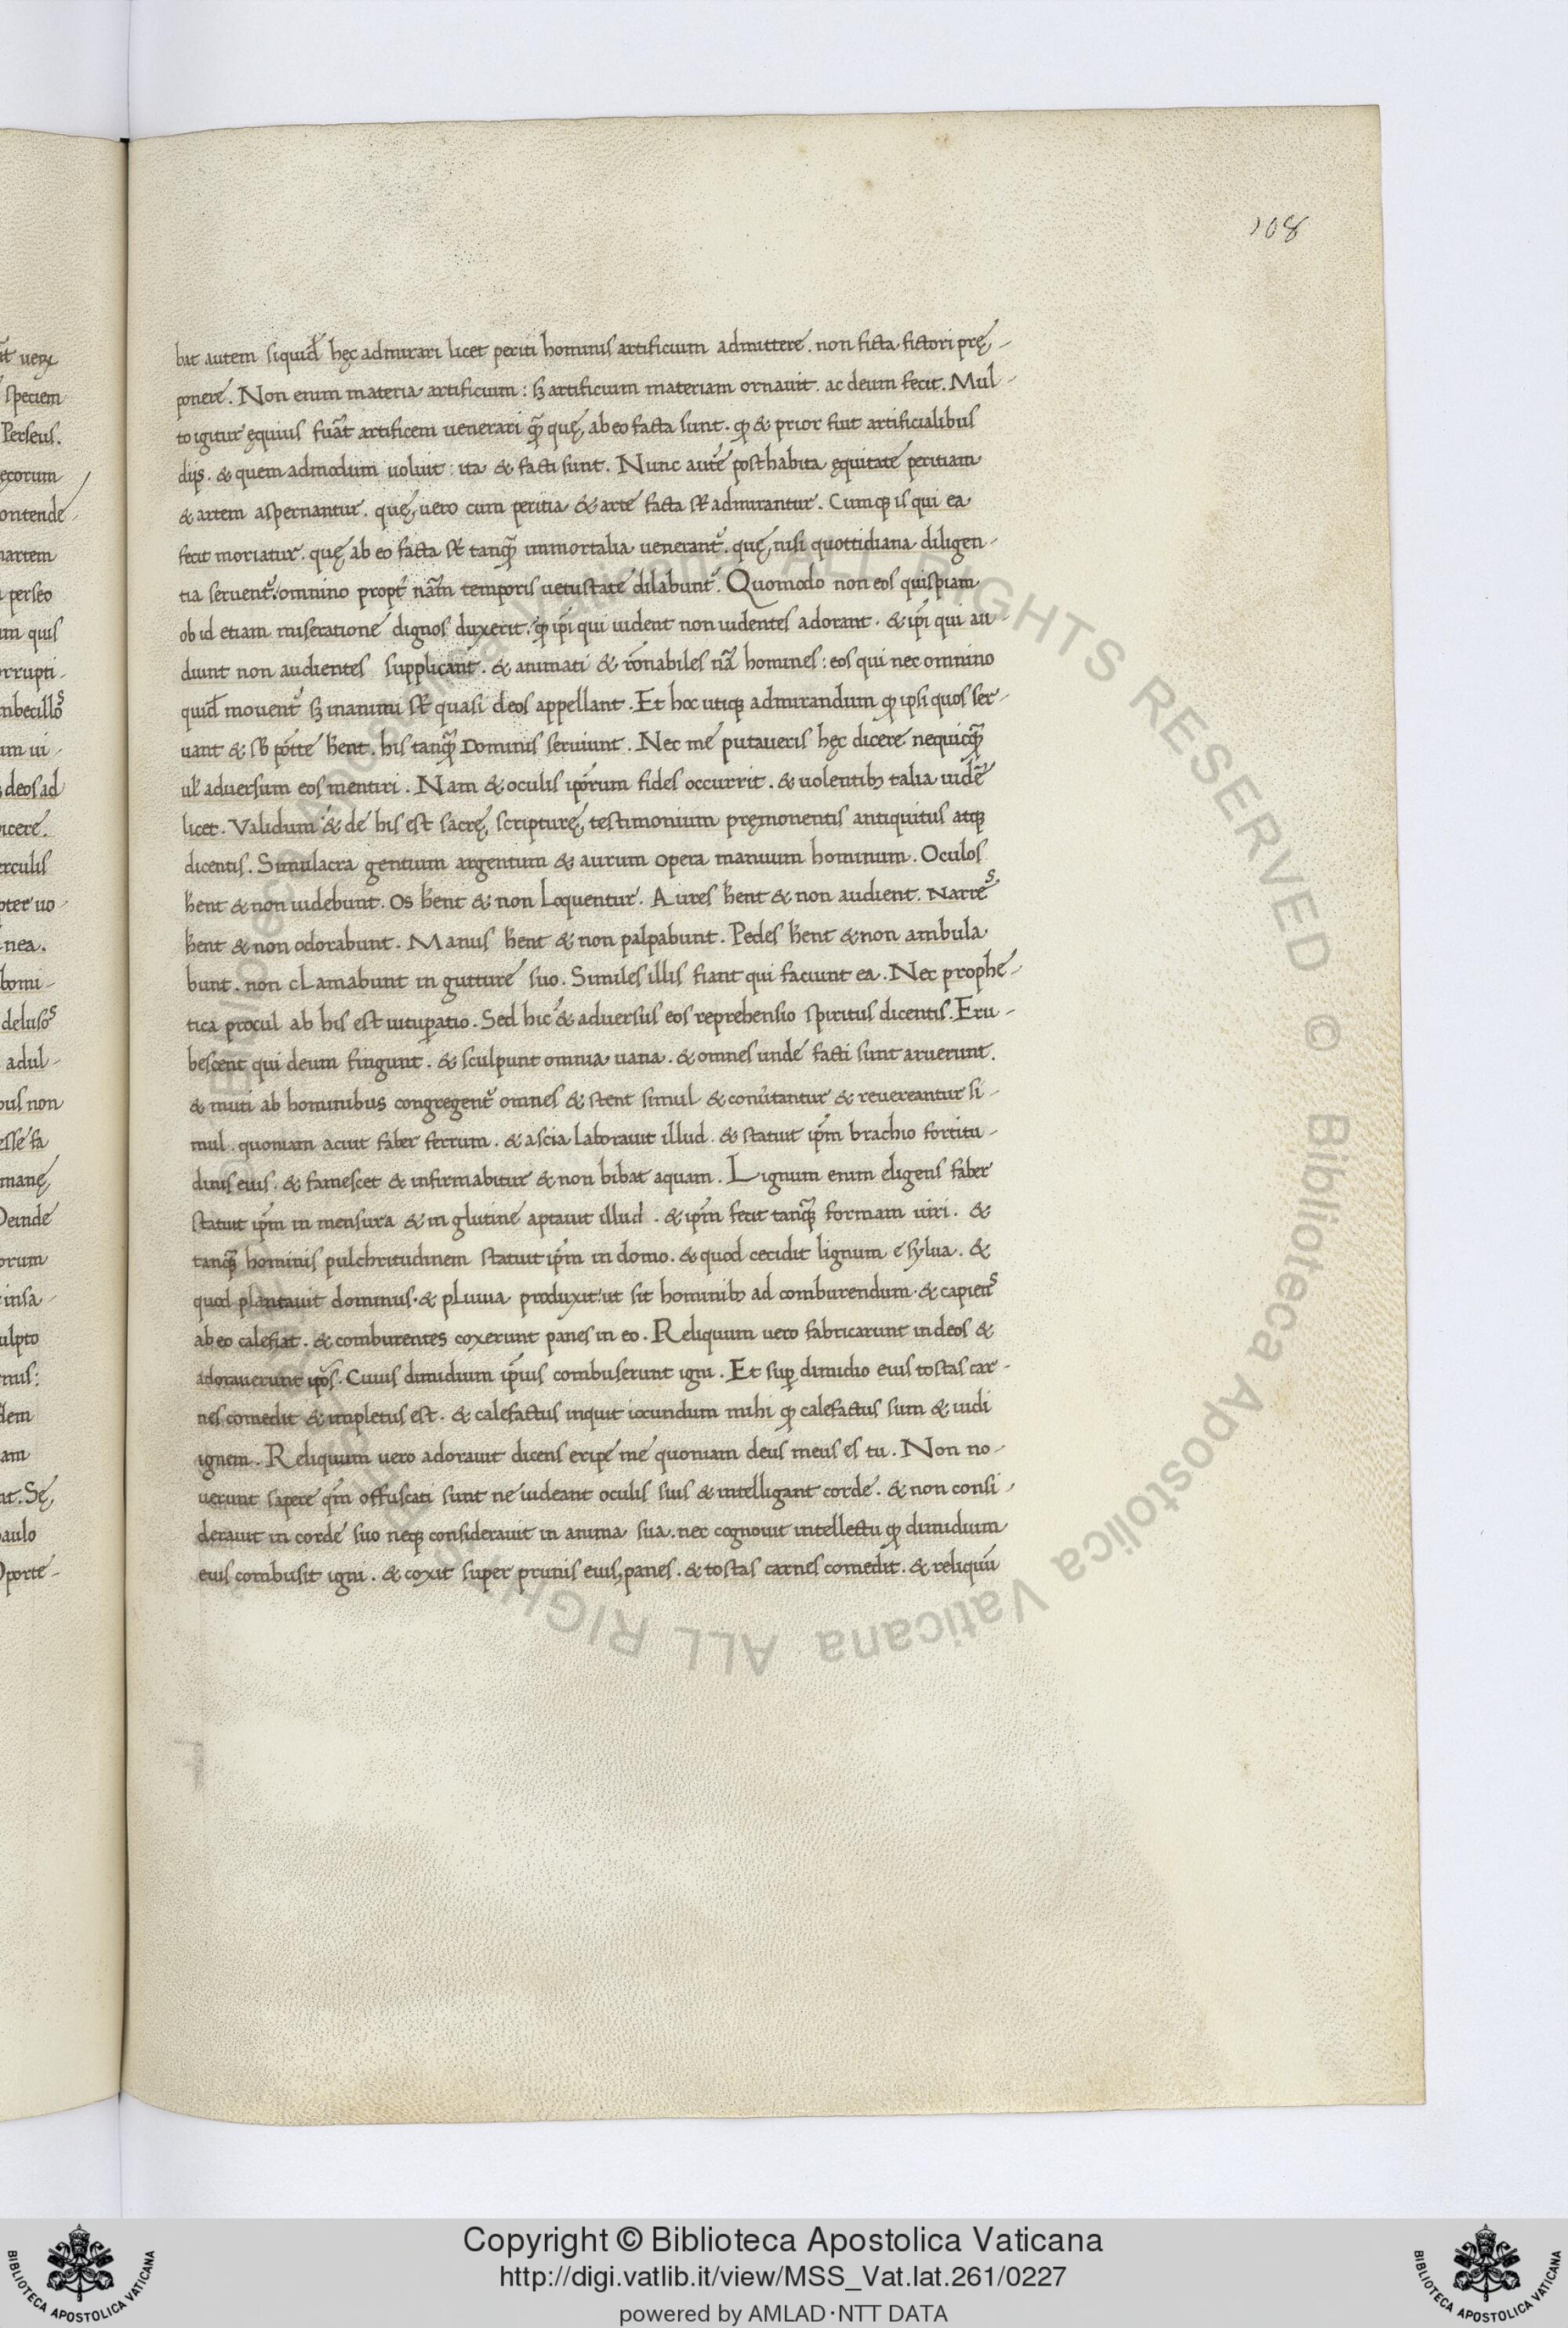 108
bat autem siquid̄ hęc admirari licet periti hominis artificium admittere. non ficta fictori prę-
ponere. Non enim materia artificium: sʒ artificium materiam ornauit. ac deum fecit. Mul-
to igitur ęquius fuāt artificem uenerari q̄ꝫ quę ab eo facta sunt. ꝙ & prior fuit artificialibus
dijs. & quem admodum uoluit: ita & facti sunt. Nunc autē posthabita ęquitate peritiam
& artem aspernantur. quę uero cum peritia & arte facta st̄ admirantur. Cumqꝫ is qui ea
fecit moriatur. quę ab eo facta st̄ tanq̄ꝫ immortalia uenerant᷑. quę nisi quottidiana diligen-
tia seruent᷑: omnino propt᷑ nām temporis uetustate dilabunt᷑. Quomodo non eos quispiam
ob id etiam miseratione dignos duxerit. ꝙ ip̄i qui uident non uidentes adorant. & ip̄i qui au-
diunt non audientes supplicant. & animati & rōnabiles nā homines: eos qui nec omnino
quid̄ mouent᷑ sʒ inanimi st̄ quasi deos appellant. Et hoc utiqꝫ admirandum ꝙ ipsi quos ser-
uant & sb̄ pōtte hn̄t. his tanq̄ꝫ Dominis seruiunt. Nec me putaueris hęc dicere nequicq̄ꝫ
ul̄ aduersum eos mentiri. Nam & oculis ip̄orum fides occurrit. & uolentibꝫ talia uidē
licet. Validum & de his est sacrę scripturę testimonium pręmonentis antiquitus atqꝫ
dicentis. Simulacra gentium argentum & aurum opera manuum hominum. Oculos
hn̄t & non uidebunt. Os hn̄t & non Loquentur. Aures hn̄t & non audient. Nares
hn̄t & non odorabunt. Manus hn̄t & non palpabunt. Pedes hn̄t & non ambula
bunt. non cLamabunt in gutture suo. Similes illis fiant qui faciunt ea. Nec prophe-
tica procul ab his est uitup̲atio. Sed hic & aduersus eos reprehensio spiritus dicentis. Eru-
bescent qui deum fingunt. & sculpunt omnia uana. & omnes unde facti sunt aruerunt.
& muti ab hominibus congregent᷑ omnes & stent simul & conūtantur & reuereantur si-
mul. quoniam acuit faber ferrum. & ascia Laborauit illud. & statuit ip̄m brachio fortitu-
dinis eius. & famescet & infirmabitur & non bibat aquam. Lignum enim eligens faber
statuit ip̄m in mensura & in glutine aptauit illud. & ip̄m fecit tanq̄ꝫ formam uiri. &
tanq̄ꝫ hominis pulchritudinem statuit ip̄m in domo. & quod cecidit lignum e sylua. &
quod plantauit dominus. & pLuuia produxit: ut sit hominibꝫ ad comburendum. & capiens
ab eo calefiat. & comburentes coxerunt panes in eo. Reliquum uero fabricarunt in deos &
adorauerunt ip̄os. Cuius dimidium ip̄ius combuserunt igni. Et sup̲ dimidio eius tostas car-
nes comedit & impletus est. & calefactus inquit iocundum mihi ꝙ calefactus sum & uidi
ignem. Reliquum uero adorauit dicens eripe me quoniam deus meus es tu. Non no-
uerunt sapere qm̄ offuscati sunt ne uideant oculis suis & intelligant corde. & non consi-
derauit in corde suo neqꝫ considerauit in anima sua. nec cognouit intellectu ꝙ dimidium
eius combusit igni. & coxit super prunis eius, panes. & tostas carnes comedit. & reliquū
Copyright © Biblioteca Apostolica Vaticana
http://digi.vatlib.it/view/MSS_Vat.lat.261/0227
powered by AMLAD·NTT DATA